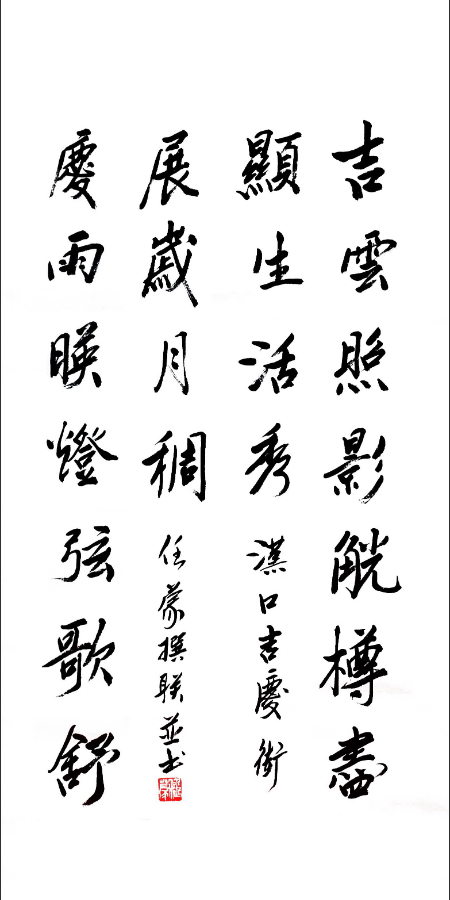 吉雲照影觥樽盡
顯生活秀
漢口吉慶街
慶雨暎燈弦歌舒
展歲月稠
任蒙撰联並书